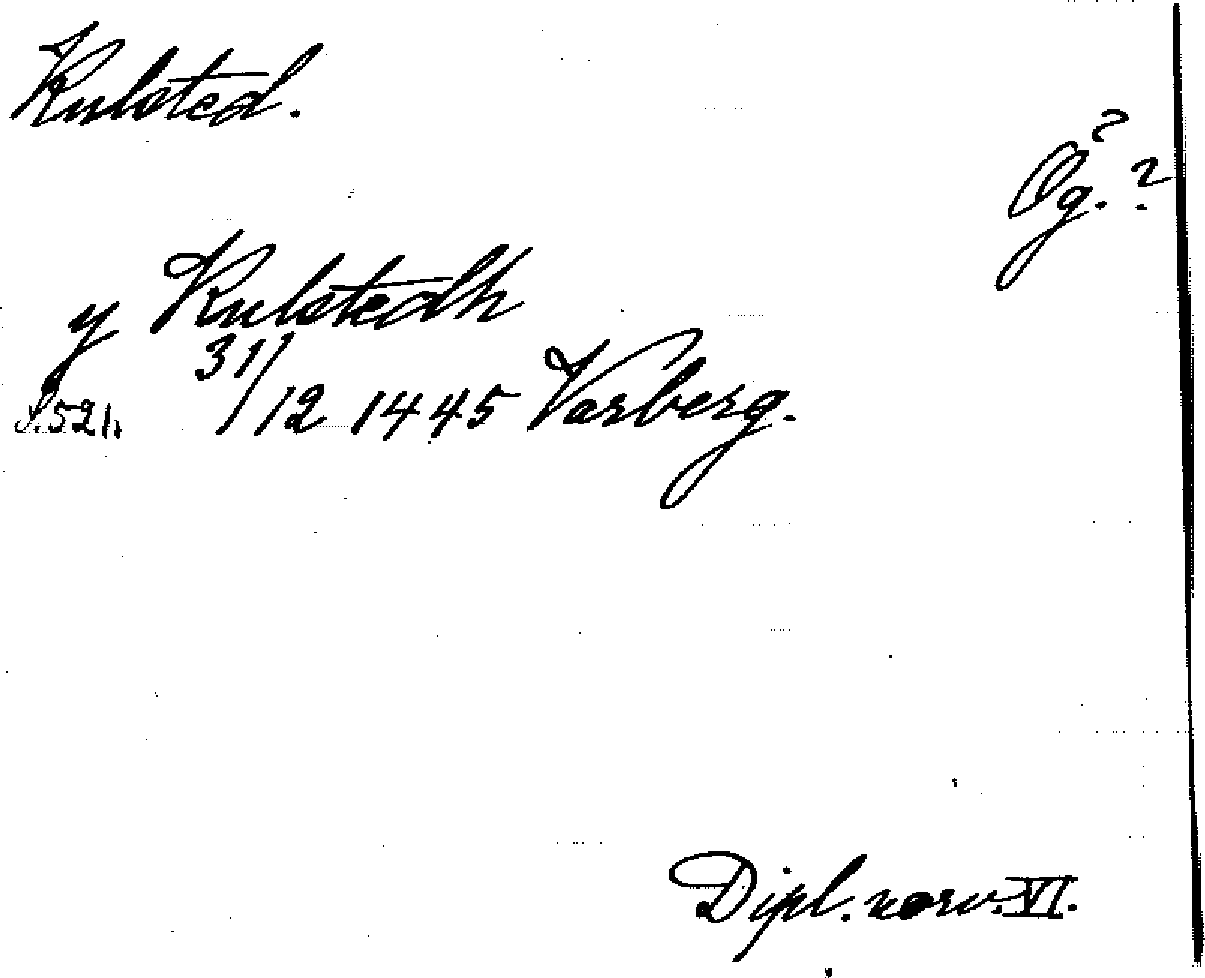 Kulsted.
Ög. ?
?
y Kulstedh
S.521. 31/12 1445 Varberg.
Dipl. norv. VI.